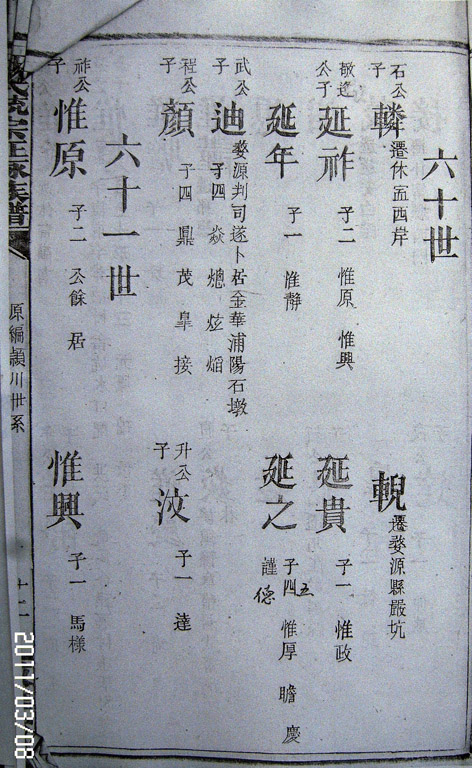 六十世
石公子
轔 遷休寍西岸
輗 遷婺源縣嚴坑
敬逵公子
延祚 子二 惟原 惟興
延貴 子一 惟政
延年 子一 惟靜
延之 子四 五 惟厚 瞻 慶 謹 德
武公子
迪 婺源判司遂卜居金華浦陽石墩 子四 焱 熜 炫 熖
程公子
顏 子四 鼎 茂 臯 接
升公子
汶 子一 達
六十一世
祚公子
惟原 子二 公餘 居
惟興 子一 馬様
宗正脉族譜
原編頴川世系
十二
2011/03/08